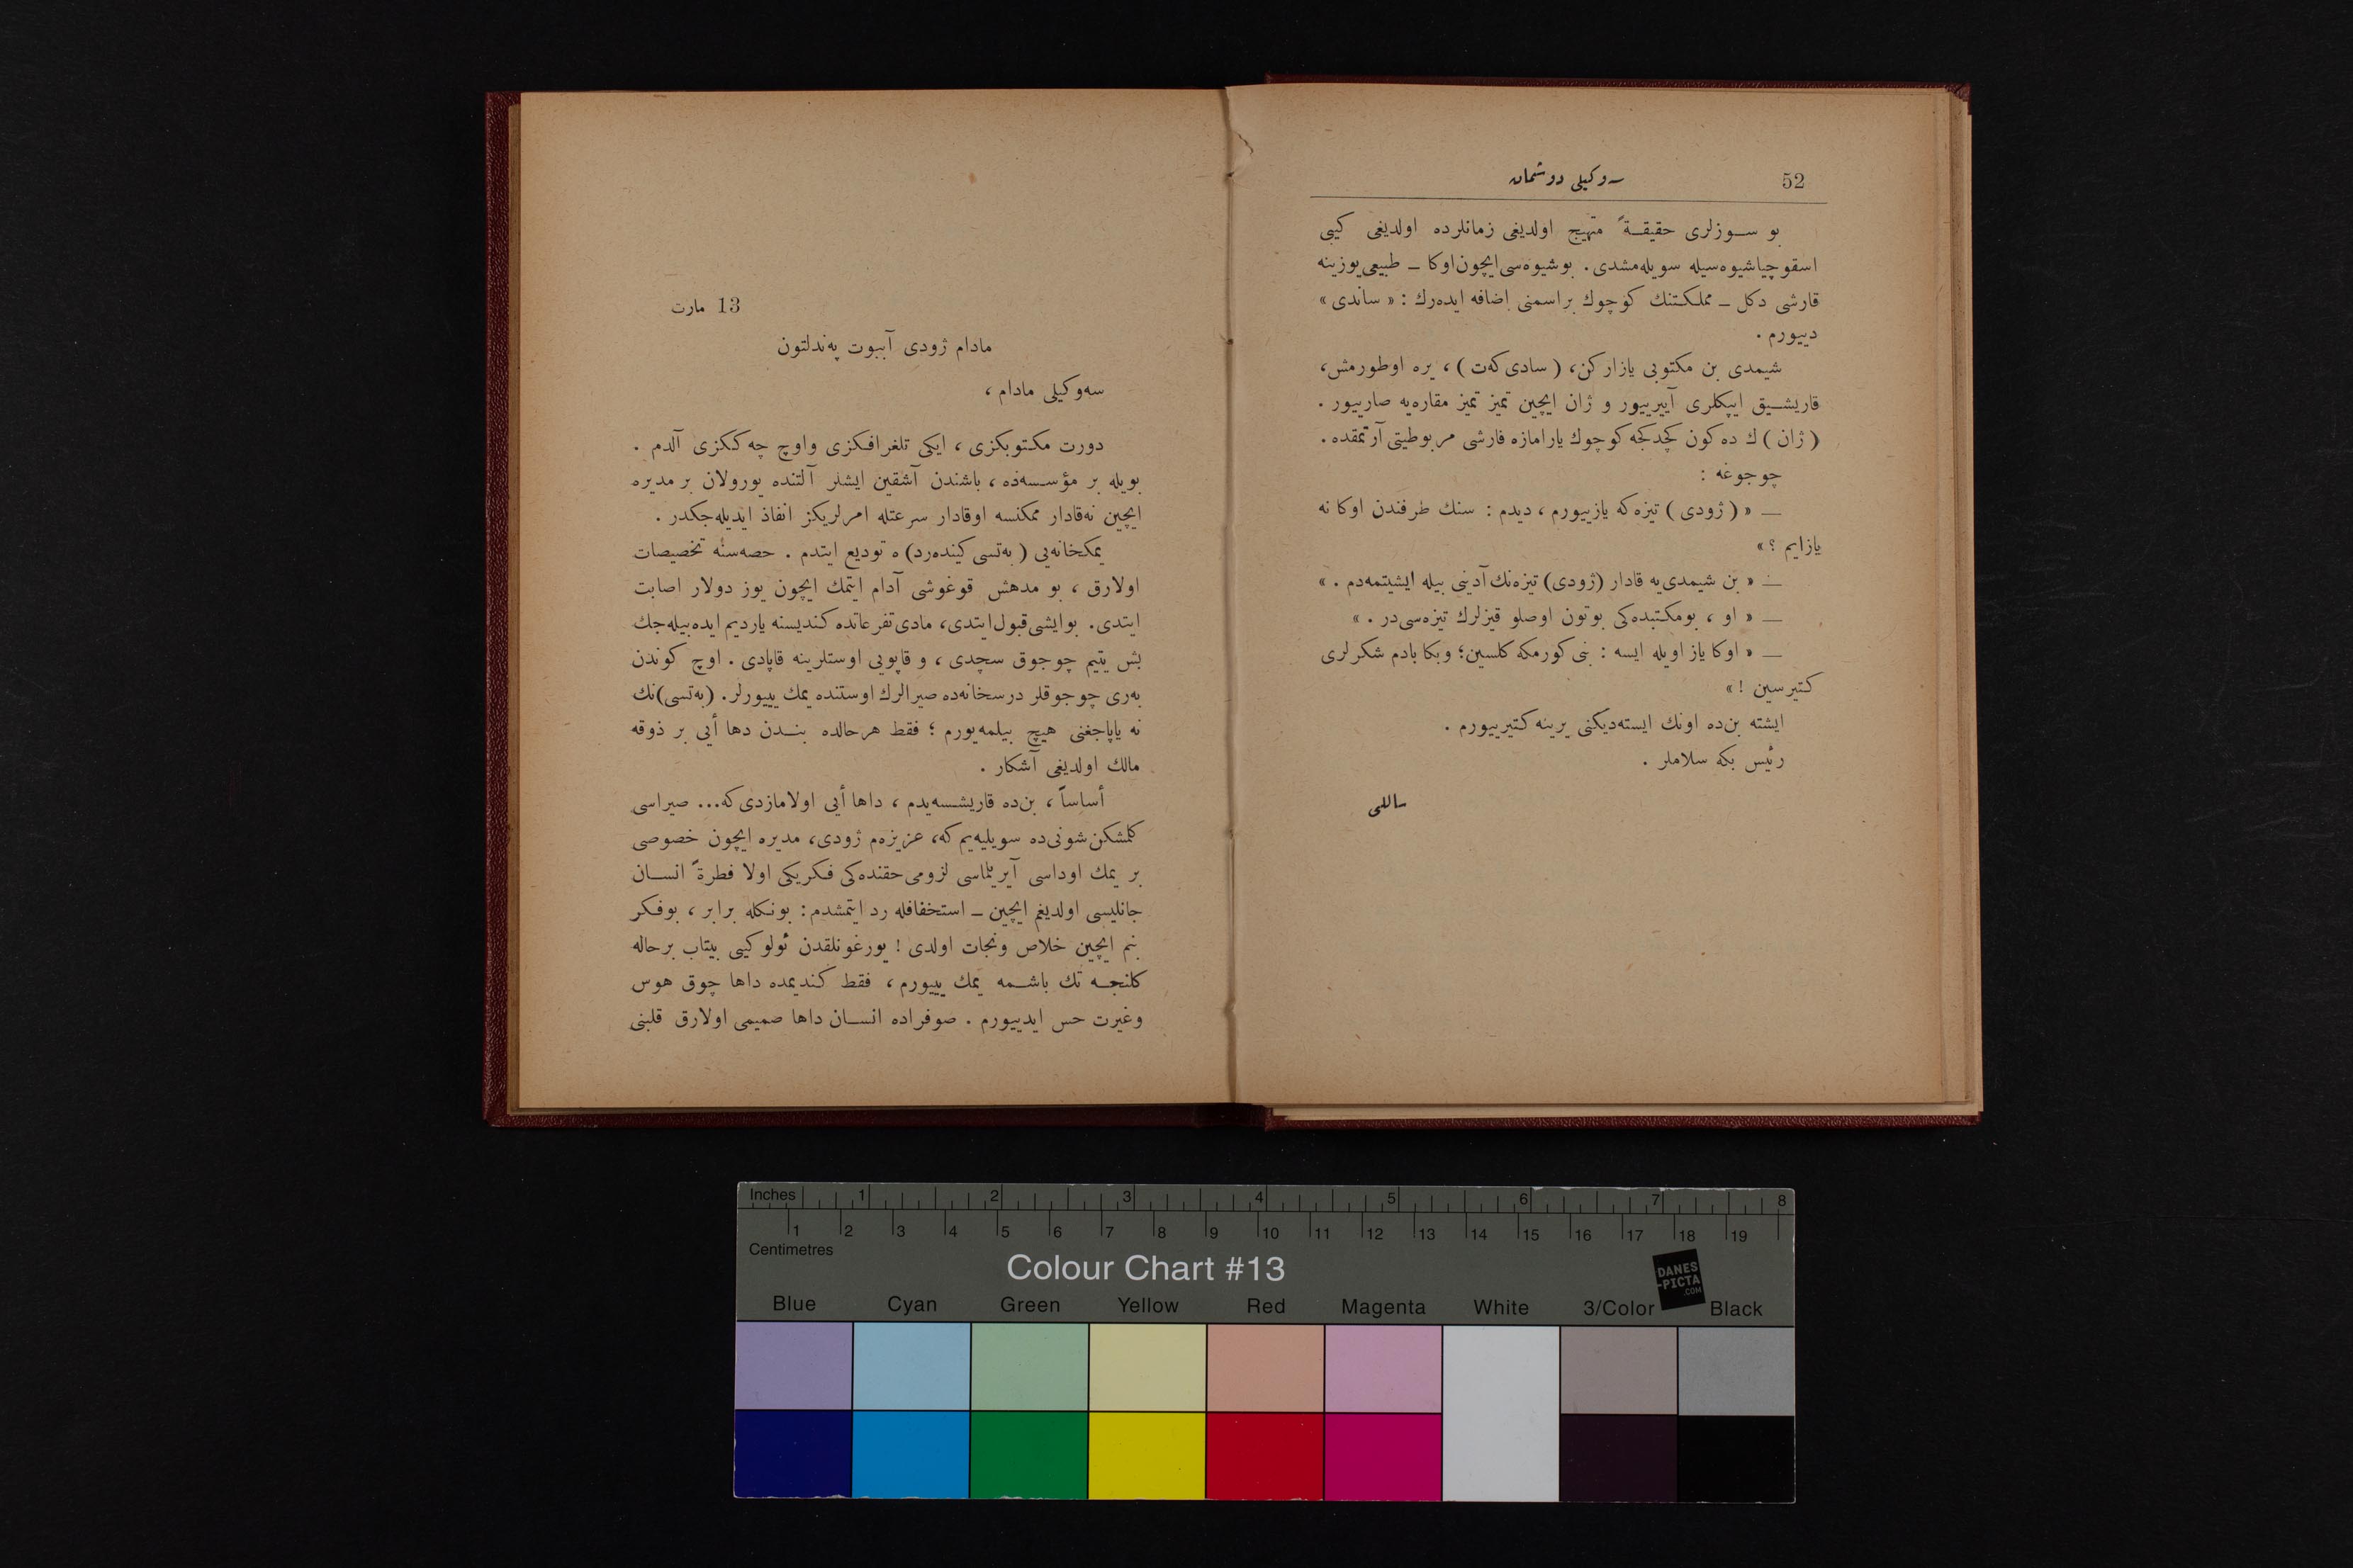 52
سوكیلی دوشمان
بو سوزلری حقیقةً متهیج اولدیغی زمانلرده اولدیغی كیبی
اسقوچیا شیوه‌سیله سویله‌مشدی . بو شیوه‌سی ایچون اوكا ــ طبیعی یوزینه
قارشی دكل ــ مملكتنك كوچوك بر اسمنی اضافه ایده‌رك : « ساندی »
دییورم .
شیمدی بن مكتوبی یازاركن، ( سادی كه‌ت ) ، یره اوطورمش،
قاریشیق ایپكلری آییرییور و ژان ایچین تمیز تمیز مقاره‌یه صارییور .
( ژان ) ك ده كون كچدكجه كوچوك یارامازه قارشی مربوطیتی آرتمقده .
چوجوغه :
ــ « ( ژودی ) تیزه‌كه یازییورم ، دیدم : سنك طرفندن اوكا نه
یازایم ؟ »
ــ « بن شیمدی‌یه قادار (ژودی) تیزه‌نك آدینی بیله ایشیتمه‌دم . »
ــ « او ، بو مكتبده‌كی بوتون اوصلو قیزلرك تیزه‌سی‌در . »
ــ « اوكا یاز اویله ایسه : بنی كورمكه كلسین؛ و بكا بادم شكرلری
كتیرسین ! »
ایشته بن‌ده اونك ایسته‌دیكنی یرینه كتیرییورم .
رئیس بكه سلاملر .
ساللی
13 مارت
مادام ژودی آببوت په‌ندلتون
سه‌وكیلی مادام ،
دورت مكتوبكزی ، ایكی تلغرافكزی و اوچ چه‌ككزی آلدم .
بویله بر مؤسسه‌ده ، باشندن آشقین ایشلر آلتنده یورولان بر مدیره
ایچین نه‌قادار ممكنسه اوقادار سرعتله امرلریكز انفاذ ایدیله‌جكدر .
یمكخانه‌یی ( به‌تسی كینده‌رد) ه تودیع ایتدم . حصه‌سنه تخصیصات
اولارق ، بو مدهش قوغوشی آدام ایتمك ایچون یوز دولار اصابت
ایتدی. بو ایشی قبول ایتدی، مادی تفرعاتده كندیسنه یاردیم ایده‌بیله‌جك
بش یتیم چوجوق سچدی ، و قاپویی اوستلرینه قاپادی . اوچ كوندن
به‌ری چوجوقلر درسخانه‌ده صیرالرك اوستنده یمك یییورلر. (به‌تسی)نك
نه یاپاجغنی هیچ بیلمه‌یورم ؛ فقط هرحالده بندن دها أیی بر ذوقه
مالك اولدیغی آشكار .
أساساً ، بن‌ده قاریشسه‌یدم ، داها أیی اولامازدی كه... صیراسی
كلمشكن شونی‌ده سویلیه‌یم كه، عزیزه‌م ژودی، مدیره ایچون خصوصی
بر یمك اوداسی آیریلماسی لزومی حقنده‌كی فكریكی اولا فطرةً انسان
جانلیسی اولدیغم ایچین ــ استخفافله رد ایتمشدم : بونكله برابر ، بو فكر
بنم ایچین خلاص و نجات اولدی ! یورغونلقدن ئولو كیبی بیتاب بر حاله
كلنجه تك باشمه یمك یییورم ، فقط كندیمده داها چوق هوس
وغیرت حس ایدییورم . صوفراده انسان داها صمیمی اولارق قلبنی
Inches 1 2 3 4 5 6 7 8
1 2 3 4 5 6 7 8 9 10 11 12 13 14 15 16 17 18 19
Centimetres
Colour Chart #13
DANES
-PICTA
.COM
Blue Cyan Green Yellow Red Magenta White 3/Color Black